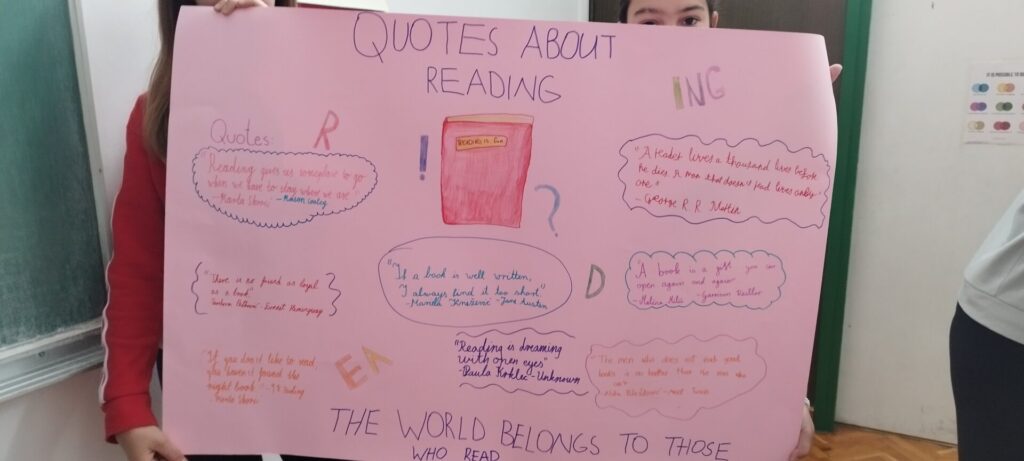 QUOTES ABOUT
READING
ING
R
Quotes:
"Reading gives us someplace to go
when we have to stay where we are"
- Mason Cooley
!
READING IS fun
?
"A reader lives a thousand lives before
he dies. A man that doesn't read lives only
one."
- George R. R. Martin
"There is no friend as loyal
as a book"
- Ernest Hemingway
"If a book is well written,
I always find it too short."
- Jane Austen
D
"A book is a gift you can
open again and again"
- Garrison Keillor
"If you don't like to read,
you haven't found the
right book" - J.K. Rowling
EA
"Reading is dreaming
with open eyes"
- Unknown
"The man who does not read good
books is no better than the man who
can't"
- Mark Twain
THE WORLD BELONGS TO THOSE
WHO READ